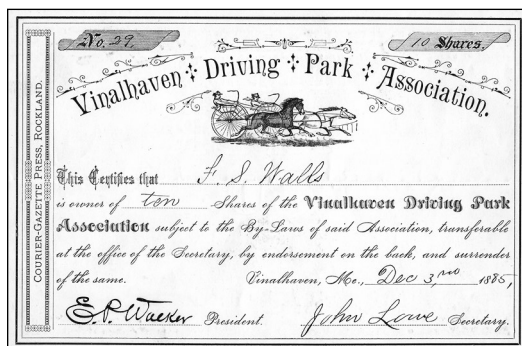 No. 29.
10 Shares.
Vinalhaven Driving Park Association.
This Certifies that F. S. Walls
is owner of ten Shares of the Vinalhaven Driving Park
Association subject to the By-Laws of said Association, transferable
at the office of the Secretary, by endorsement on the back, and surrender
of the same. Vinalhaven, Me., Dec 3, 1885,
E. P. Walker President. John Lowe Secretary.
COURIER-GAZETTE PRESS, ROCKLAND.